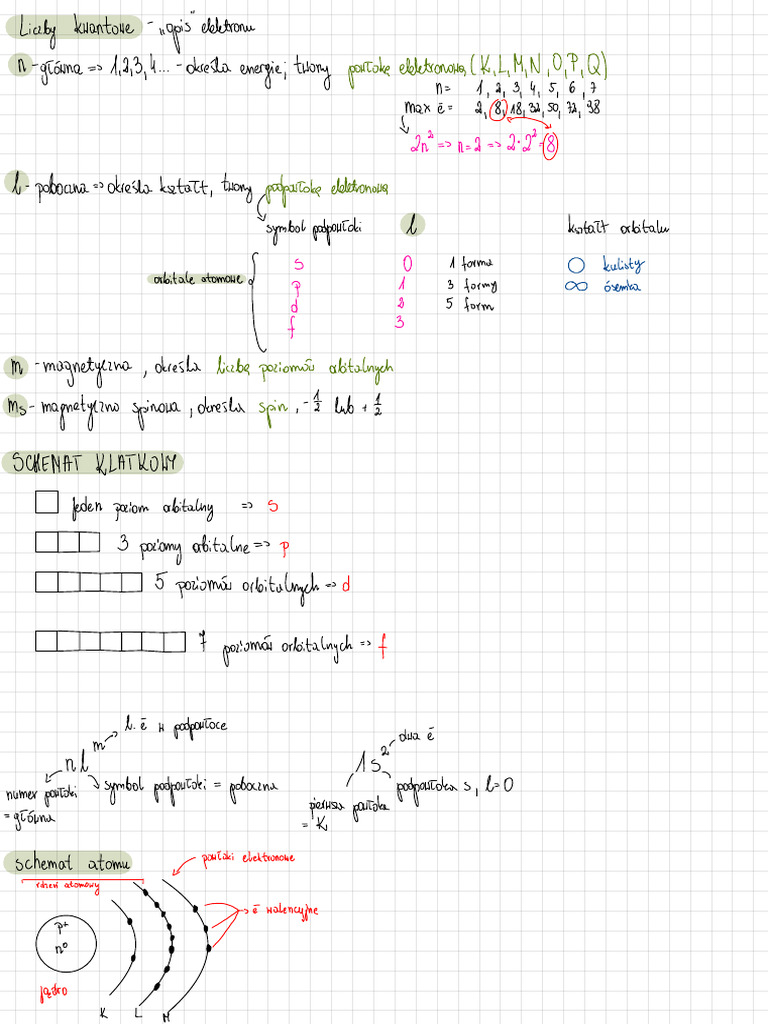 Liczby kwantowe - "opis" elektronu
n - główna => 1,2,3,4... - określa energię; tworzy powłokę elektronową (K,L,M,N,O,P,Q)
n= 1, 2, 3, 4, 5, 6, 7
max ē = 2, 8, 18, 32, 50, 72, 98
2n² => n=2 => 2·2² = 8
l - poboczna => określa kształt, tworzy podpowłokę elektronową
symbol podpowłoki l kształt orbitalu
s 0 1 forma ○ kulisty
orbitale atomowe
p 1 3 formy ∞ ósemka
d 2 5 form
f 3
m - magnetyczna, określa liczbę poziomów orbitalnych
ms - magnetyczno spinowa, określa spin, -1/2 lub +1/2
SCHEMAT KLATKOWY
jeden poziom orbitalny => s
3 poziomy orbitalne => p
5 poziomów orbitalnych => d
7 poziomów orbitalnych => f
l. ē w podpowłoce
nlᵐ
symbol podpowłoki = poboczna
numer powłoki
= główna
dwa ē
1s²
podpowłoka s, l=0
pierwsza powłoka
= K
schemat atomu
powłoki elektronowe
rdzeń atomowy
ē walencyjne
p+
n⁰
jądro
K L M